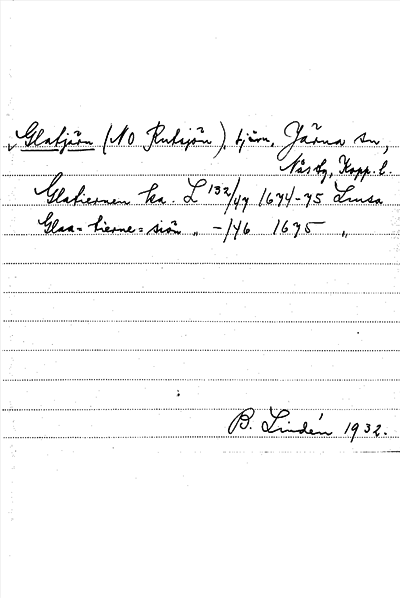 Glatjärn (NO Rutsjön), tjärn, Järna sn,
Nås tg, Kopp. l.
Glatiernen ka. L 132/47 1674-75 Lmsa
Glaa=tierne=siön „ -/46 1675 „
B. Lindén 1932.